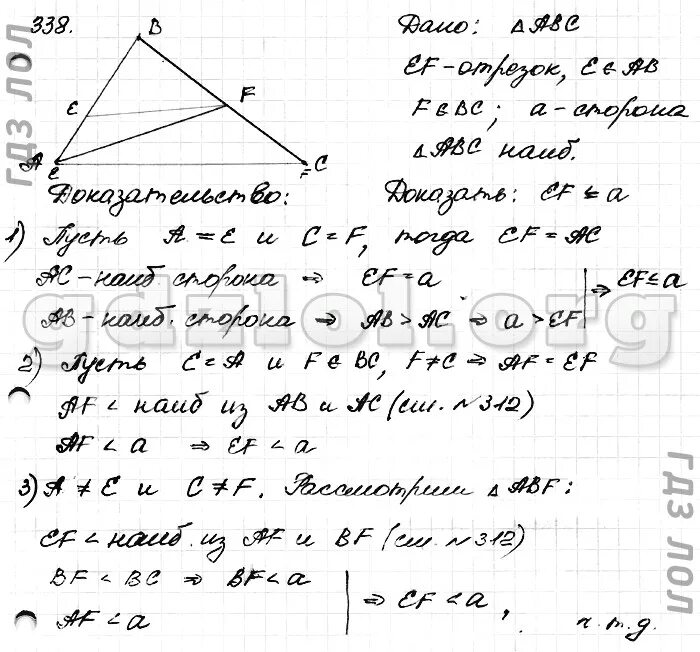 338.
B
E
F
A
E
F
C
Дано: △ABC
EF-отрезок, E∈AB
F∈BC; a-сторона
△ABC наиб.
Доказать: EF ≤ a
Доказательство:
1) Пусть A = E и C = F, тогда EF = AC
AC-наиб. сторона ⇒ EF = a
AB-наиб. сторона ⇒ AB > AC ⇒ a > EF
⇒ EF ≤ a
2) Пусть E = A и F ∈ BC, F ≠ C ⇒ AF = EF
AF < наиб из AB и AC (см. №312)
AF < a ⇒ EF < a
3) A ≠ E и C ≠ F. Рассмотрим △ABF:
EF < наиб. из AF и BF (см. №312)
BF < BC ⇒ BF < a
AF < a
⇒ EF < a,
ч.т.д.
гдз лол
gdzlol.org
гдз лол